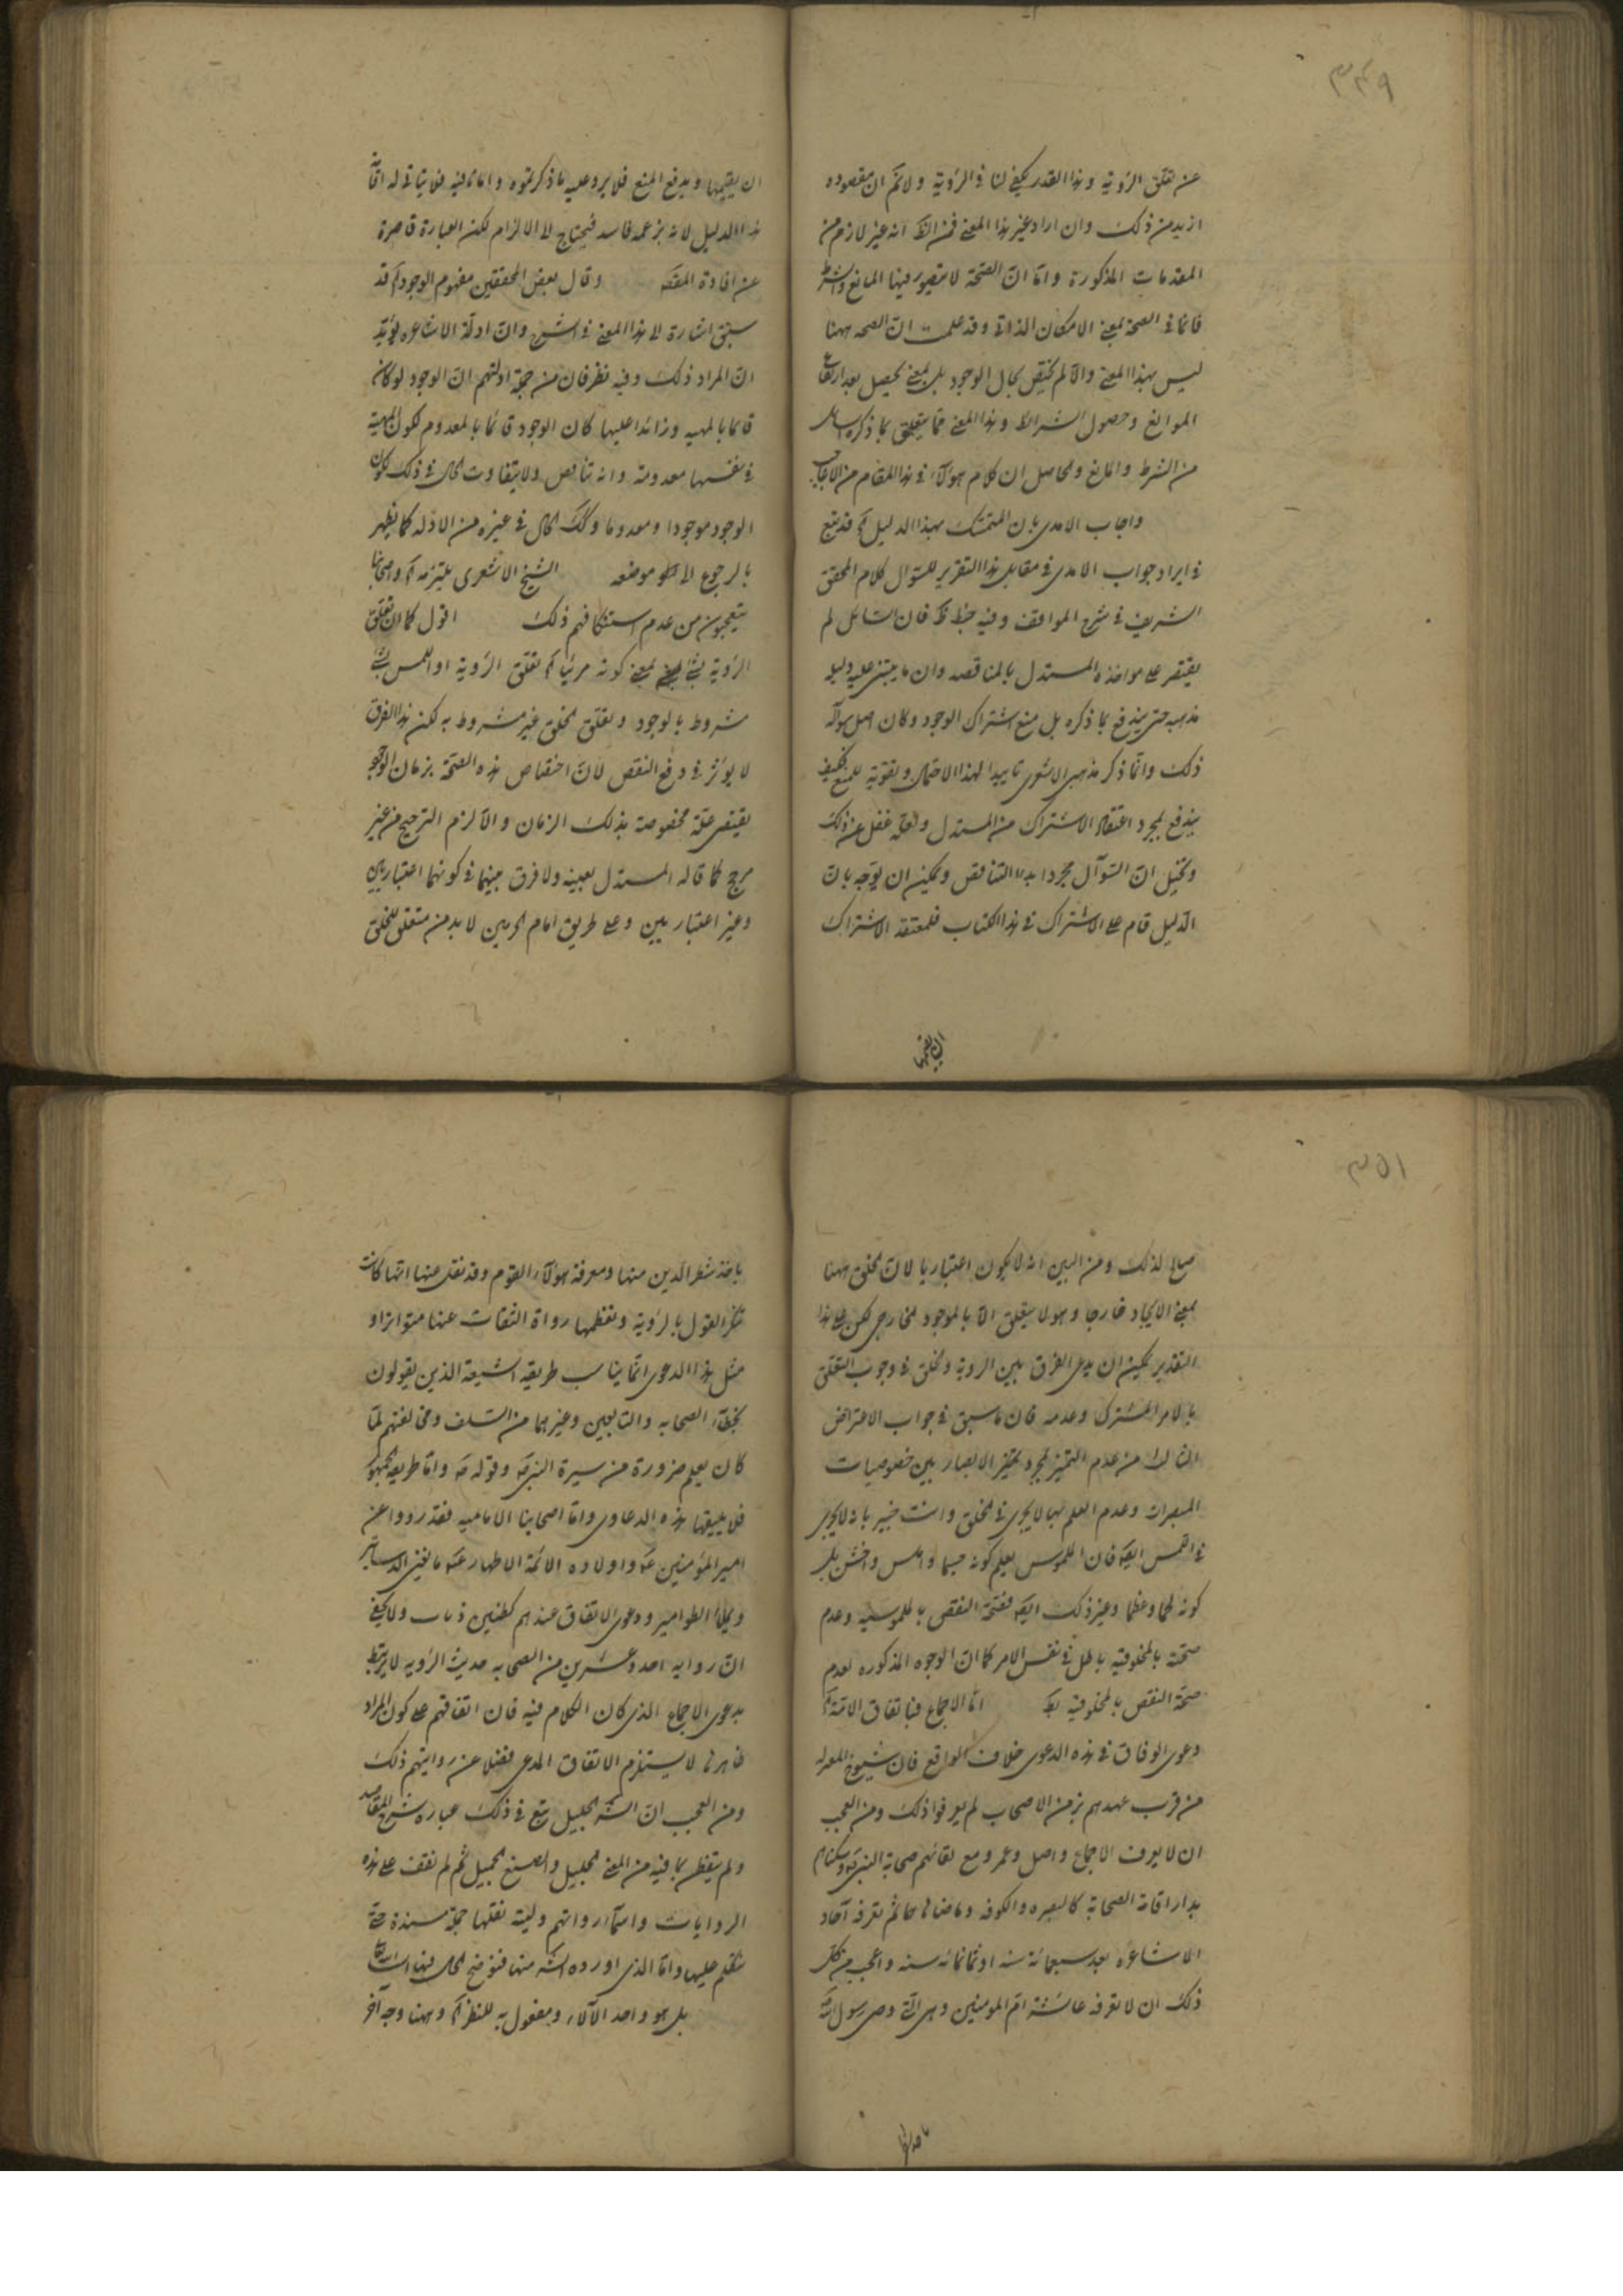 ٣٤٩
عن تعلق الرؤية وهذا القدر يكفى لنا فى الرؤية ولا نم ان مقصوده
ازيد من ذلك وان اراد غير هذا المعنى فمن الظ انه غير لازم من
المقدمات المذكورة واما ان الصحة لا يتصور فيها المانع والشرط
فانما فى الصحة بمعنى الامكان الذاتى وقد علمت ان الصحه ههنا
ليس بهذا المعنى والا لم يختص بحال الوجود بل بمعنى يحصل بعد ارتفاع
الموانع وحصول الشرائط وهذا المعنى مما يتعلق بما ذكره السائل
من الشرط والمانع والحاصل ان كلام هؤلاء فى هذا المقام من الاعاجيب
واجاب الامدى بان المتمسك بهذا الدليل اه قد تبع
فى ايراد جواب الامدى فى مقابل هذا التقرير للسؤال كلام المحقق
الشريف فى شرح المواقف وفيه خبط ظ فان السائل لم
يقتصر على مواخذه المستدل بالمناقصه وان ما يبتنى عليه دليله
مذهبه حتى يندفع بما ذكره بل منع اشتراك الوجود وكان اصل سؤاله
ذلك وانما ذكر مذهب الاشعرى تاييدا لهذا الاحتمال وتقوية للمنع فكيف
يندفع بمجرد اعتقاد الاشتراك من المستدل ولعله غفل عن ذلك
وتخيل ان السؤال مجرد ابداء التناقص ويمكن ان يوجه بان
الدليل قام على الاشتراك فى هذا الكتاب فلمعتقد الاشتراك
ان يقيمها
ان يقيمها ويدفع المنع فلا يرد عليه ما ذكرتموه واما نافيه فلا يتاتى له اقامة
هذا الدليل لانه بزعمه فاسد فيحتاج الى الالزام لكن العبارة قاصرة
عن افادة المقصد وقال بعض المحققين مفهوم الوجود اه قد
سبق اشارة الى هذا المعنى فى الشرح وان ادلة الاشاعره يؤيد
ان المراد ذلك وفيه نظر فان من جملة ادلتهم ان الوجود لو كان
قائما بالمهيه وزائدا عليها كان الوجود قائما بالمعدوم لكون المهية
فى نفسها معدومة وانه تناقص ولا يتفاوت الحال فى ذلك بكون
الوجود موجودا ومعدوما وكك الحال فى غيره من الادله كما يظهر
بالرجوع الى موضعه الشيخ الاشعرى يلتزمه اه واصحابنا
يتعجبون من عدم استنكافهم ذلك اقول كما ان تعلق
الرؤية بشئ بمعنى كونه مرئيا اه تعلق الرؤية او اللمس بشئ
مشروط بالوجود وتعلق الخلق غير مشروط به لكن هذا الفرق
لا يؤثر فى دفع النقص لان اختصاص هذه الصحة بزمان الوجود
يقتضى علة مخصوصة بذلك الزمان والا لزم الترجيح من غير
مرجح كما قاله المستدل بعينه ولا فرق بينهما فى كونهما اعتباريين
وغير اعتباريين وعلى طريق امام الحرمين لابد من متعلق للخلق
٣٥١
صالح لذلك ومن البين انه لا يكون اعتباريا لان الخلق ههنا
بمعنى الايجاد خارجا وهو لا يتعلق الا بالموجود الخارجى لكن على هذا
التقدير يمكن ان يدعى الفرق بين الروية والخلق فى وجوب التعلق
بالامر المشترك وعدمه فان ما سبق فى جواب الاعتراض
الثالث من عدم التميز بمجرد تمييز الابصار بين خصوصيات
المبصرات وعدم العلم بها لا يجرى فى الخلق وانت خبير بانه لا يجرى
فى اللمس ايضا فان الملموس يعلم كونه جسما واملس واخشن بل
كونه لحما وعظما وغير ذلك ايضا فصحة النقص بالملموسيه وعدم
صحته بالمخلوقيه باطل فى نفس الامر كما ان الوجوه المذكوره لعدم
صحة النقص بالمخلوقيه بط اما الاجماع فباتفاق الامة اه
دعوى الوفاق فى هذه الدعوى خلاف الواقع فان شيوخ المعتزله
من قرب عهدهم بزمن الاصحاب لم يعرفوا ذلك ومن العجب
ان لا يعرف الاجماع واصل وعمرو مع لقائهم صحابة النبى ص وسكناهم
بدار اقامة الصحابة كالبصره والكوفه وما ضاهاهما ثم تعرفه آحاد
الاشاعره بعد سبعمائة سنه او ثمانمائه سنه واعجب من كل
ذلك ان لا تعرفه عائشة ام المومنين وهى التى وصى رسول الله
باخذ
باخذ شطر الدين منها ومعرفة هؤلاء القوم وقد نقل عنها انها كانت
تنكر القول بالرؤية وتعظمها رواة الثقات عنها متواترا و
مثل هذا الدعوى انما يناسب طريقه الشيعة الذين يقولون
بخطاء الصحابه والتابعين وغيرهما من السلف ومخالفتهم لما
كان يعلم ضرورة من سيرة النبى ص وقوله ص واما طريقه الجمهور
فلا يليقها هذه الدعاوى واما اصحابنا الاماميه فقد رووا عن
امير المؤمنين ع واولاده الائمة الاطهار ع ما يفنى الدساتير
ويملأ الطوامير ودعوى الاتفاق عندهم كطنين ذباب ولا يخفى
ان روايه احد وعشرين من الصحابه حديث الرؤيه لا يرتبط
بدعوى الاجماع الذى كان الكلام فيه فان اتفاقهم على كون المراد
ظاهرها لا يستلزم الاتفاق المدعى فضلا عن روايتهم ذلك
ومن العجب ان الشه الجليل تبع فى ذلك عباره شرح المقاصد
ولم يتفطن بما فيه من المعنى الجليل والصنع الجميل ثم لم نقف على هذه
الروايات واسماء رواتهم وليته نقلها جملة مسندة حتى
نتكلم عليها واما الذى اورده الشه منها فنوضح الحال فيها انشاء الله
بل هو واحد الآلاء ومفعول به للنظر اه وههنا وجه آخر